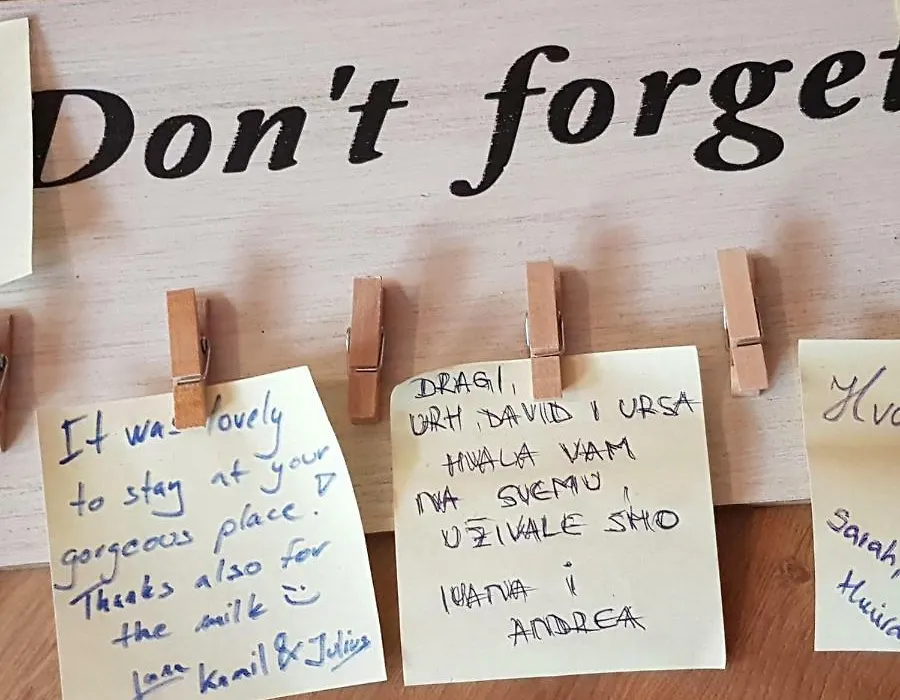 Don't forget
It was lovely
to stay at your
gorgeous place!
Thanks also for
the milk
Kamil & Julius
DRAGI,
URH, DAVID I URSA
HVALA VAM
NA SVEMU,
UŽIVALE SMO
IVANA i
ANDREA
Hva
Sarah,